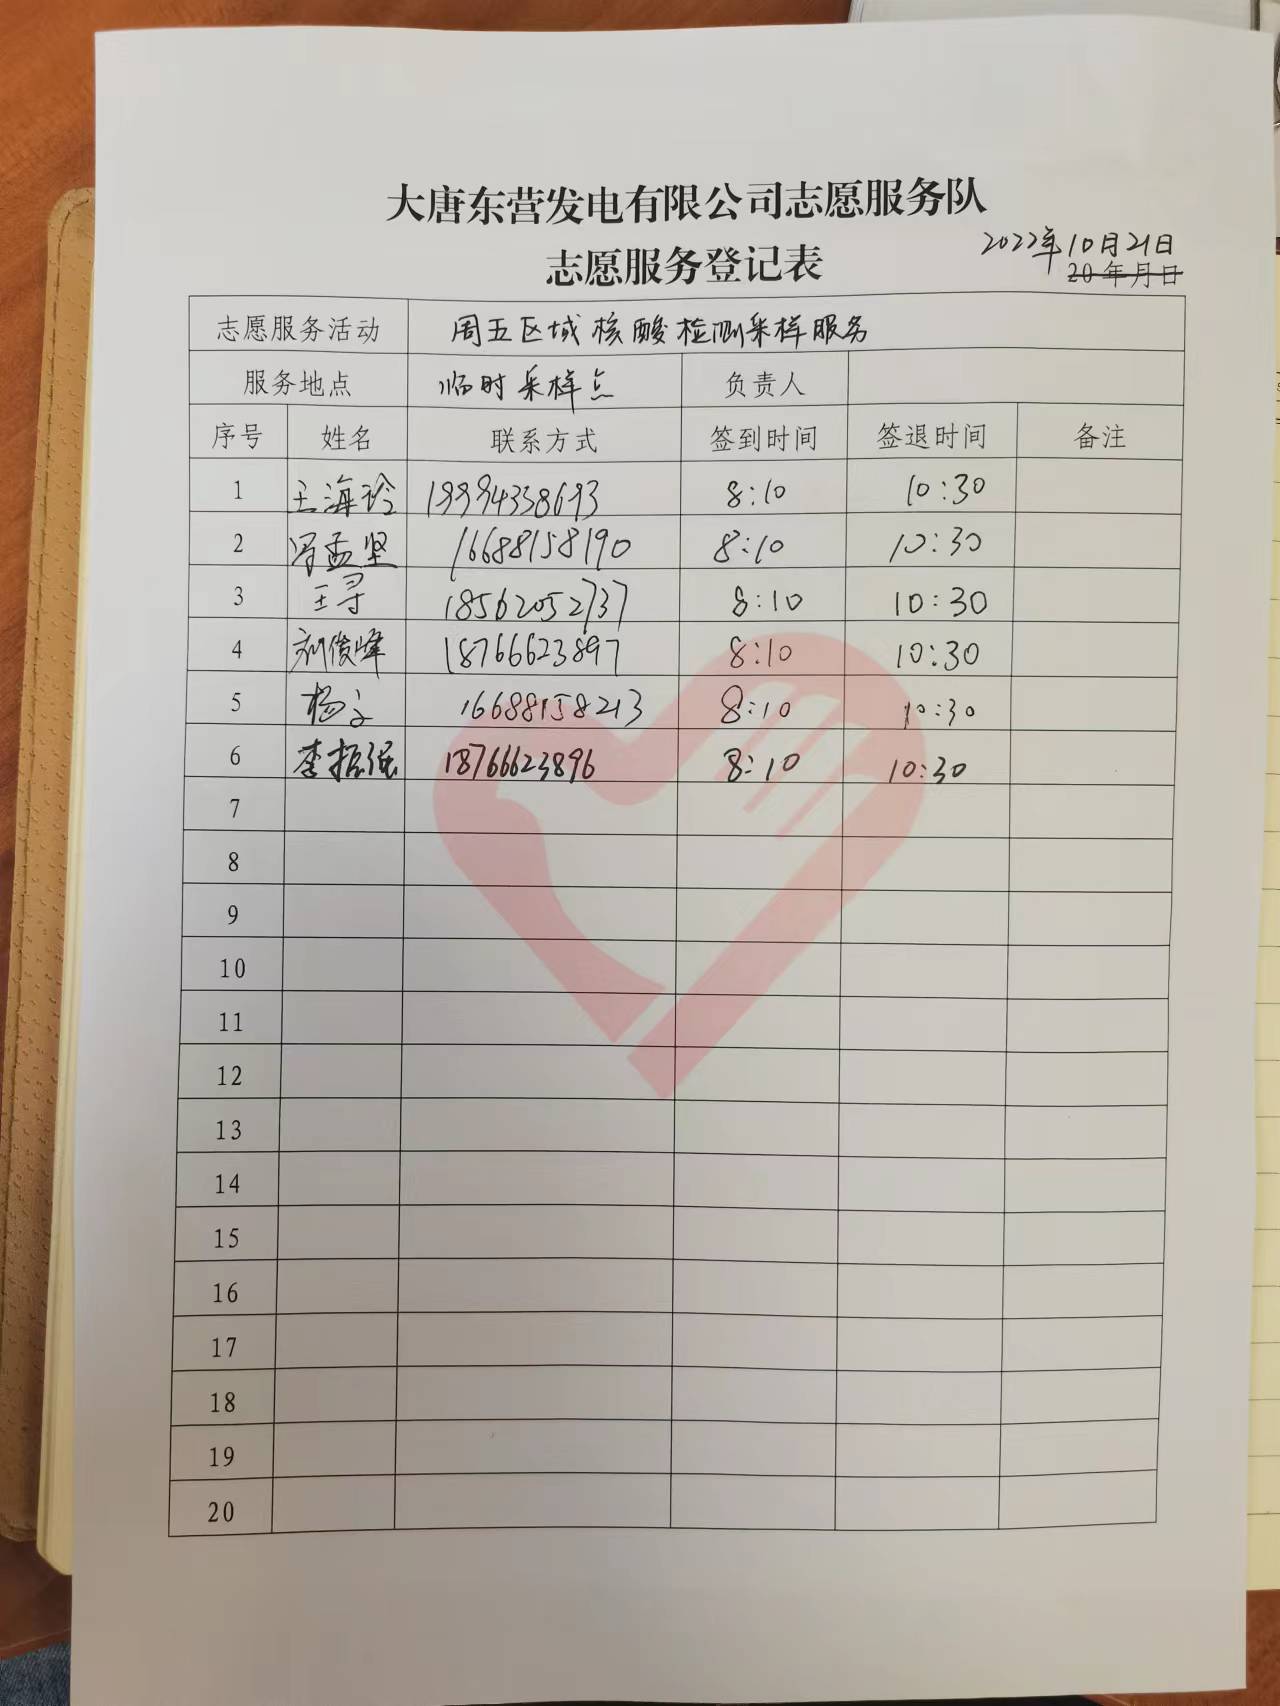 大唐东营发电有限公司志愿服务队
志愿服务登记表
2022年10月21日
20 年 月 日
志愿服务活动 周五区域核酸检测采样服务
服务地点 临时采样点 负责人
序号 姓名 联系方式 签到时间 签退时间 备注
1 王海玲 19994358693 8:10 10:30
2 冯孟坚 16688158190 8:10 10:30
3 王寻 18562052737 8:10 10:30
4 刘俊峰 18766623897 8:10 10:30
5 杨文 16688158213 8:10 10:30
6 李振强 18766623896 8:10 10:30
7
8
9
10
11
12
13
14
15
16
17
18
19
20